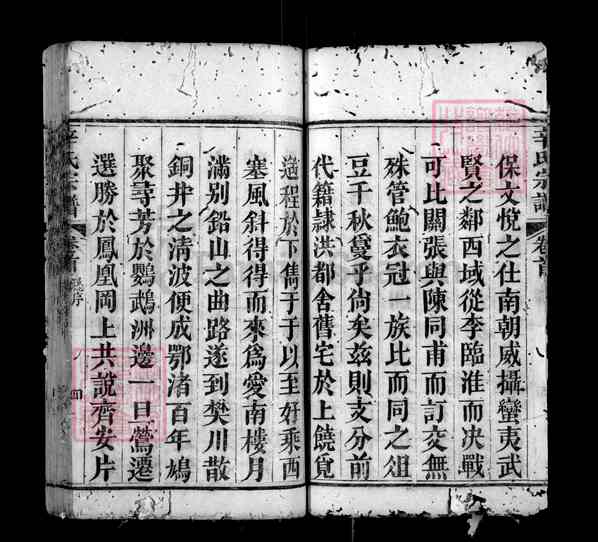 辛氏宗譜 卷首
保文悅之仕南朝威攝蠻夷武
賢之鄰西域從李臨淮而决戰
可比關張與陳同甫而訂交無
殊管鮑衣冠一族比而同之俎
豆千秋敻乎尙矣茲則支分前
代籍隷洪都舍舊宅於上饒覓
遥程於下雋于于以至好乘西
塞風斜得得而來爲愛南樓月
滿別鉛山之曲路遂到樊川散
銅井之清波便成鄂渚百年鳩
聚尋芳於鸚鵡洲邊一旦鶯遷
選勝於鳳凰岡上共說齊安片
辛氏宗譜 卷首 序 四